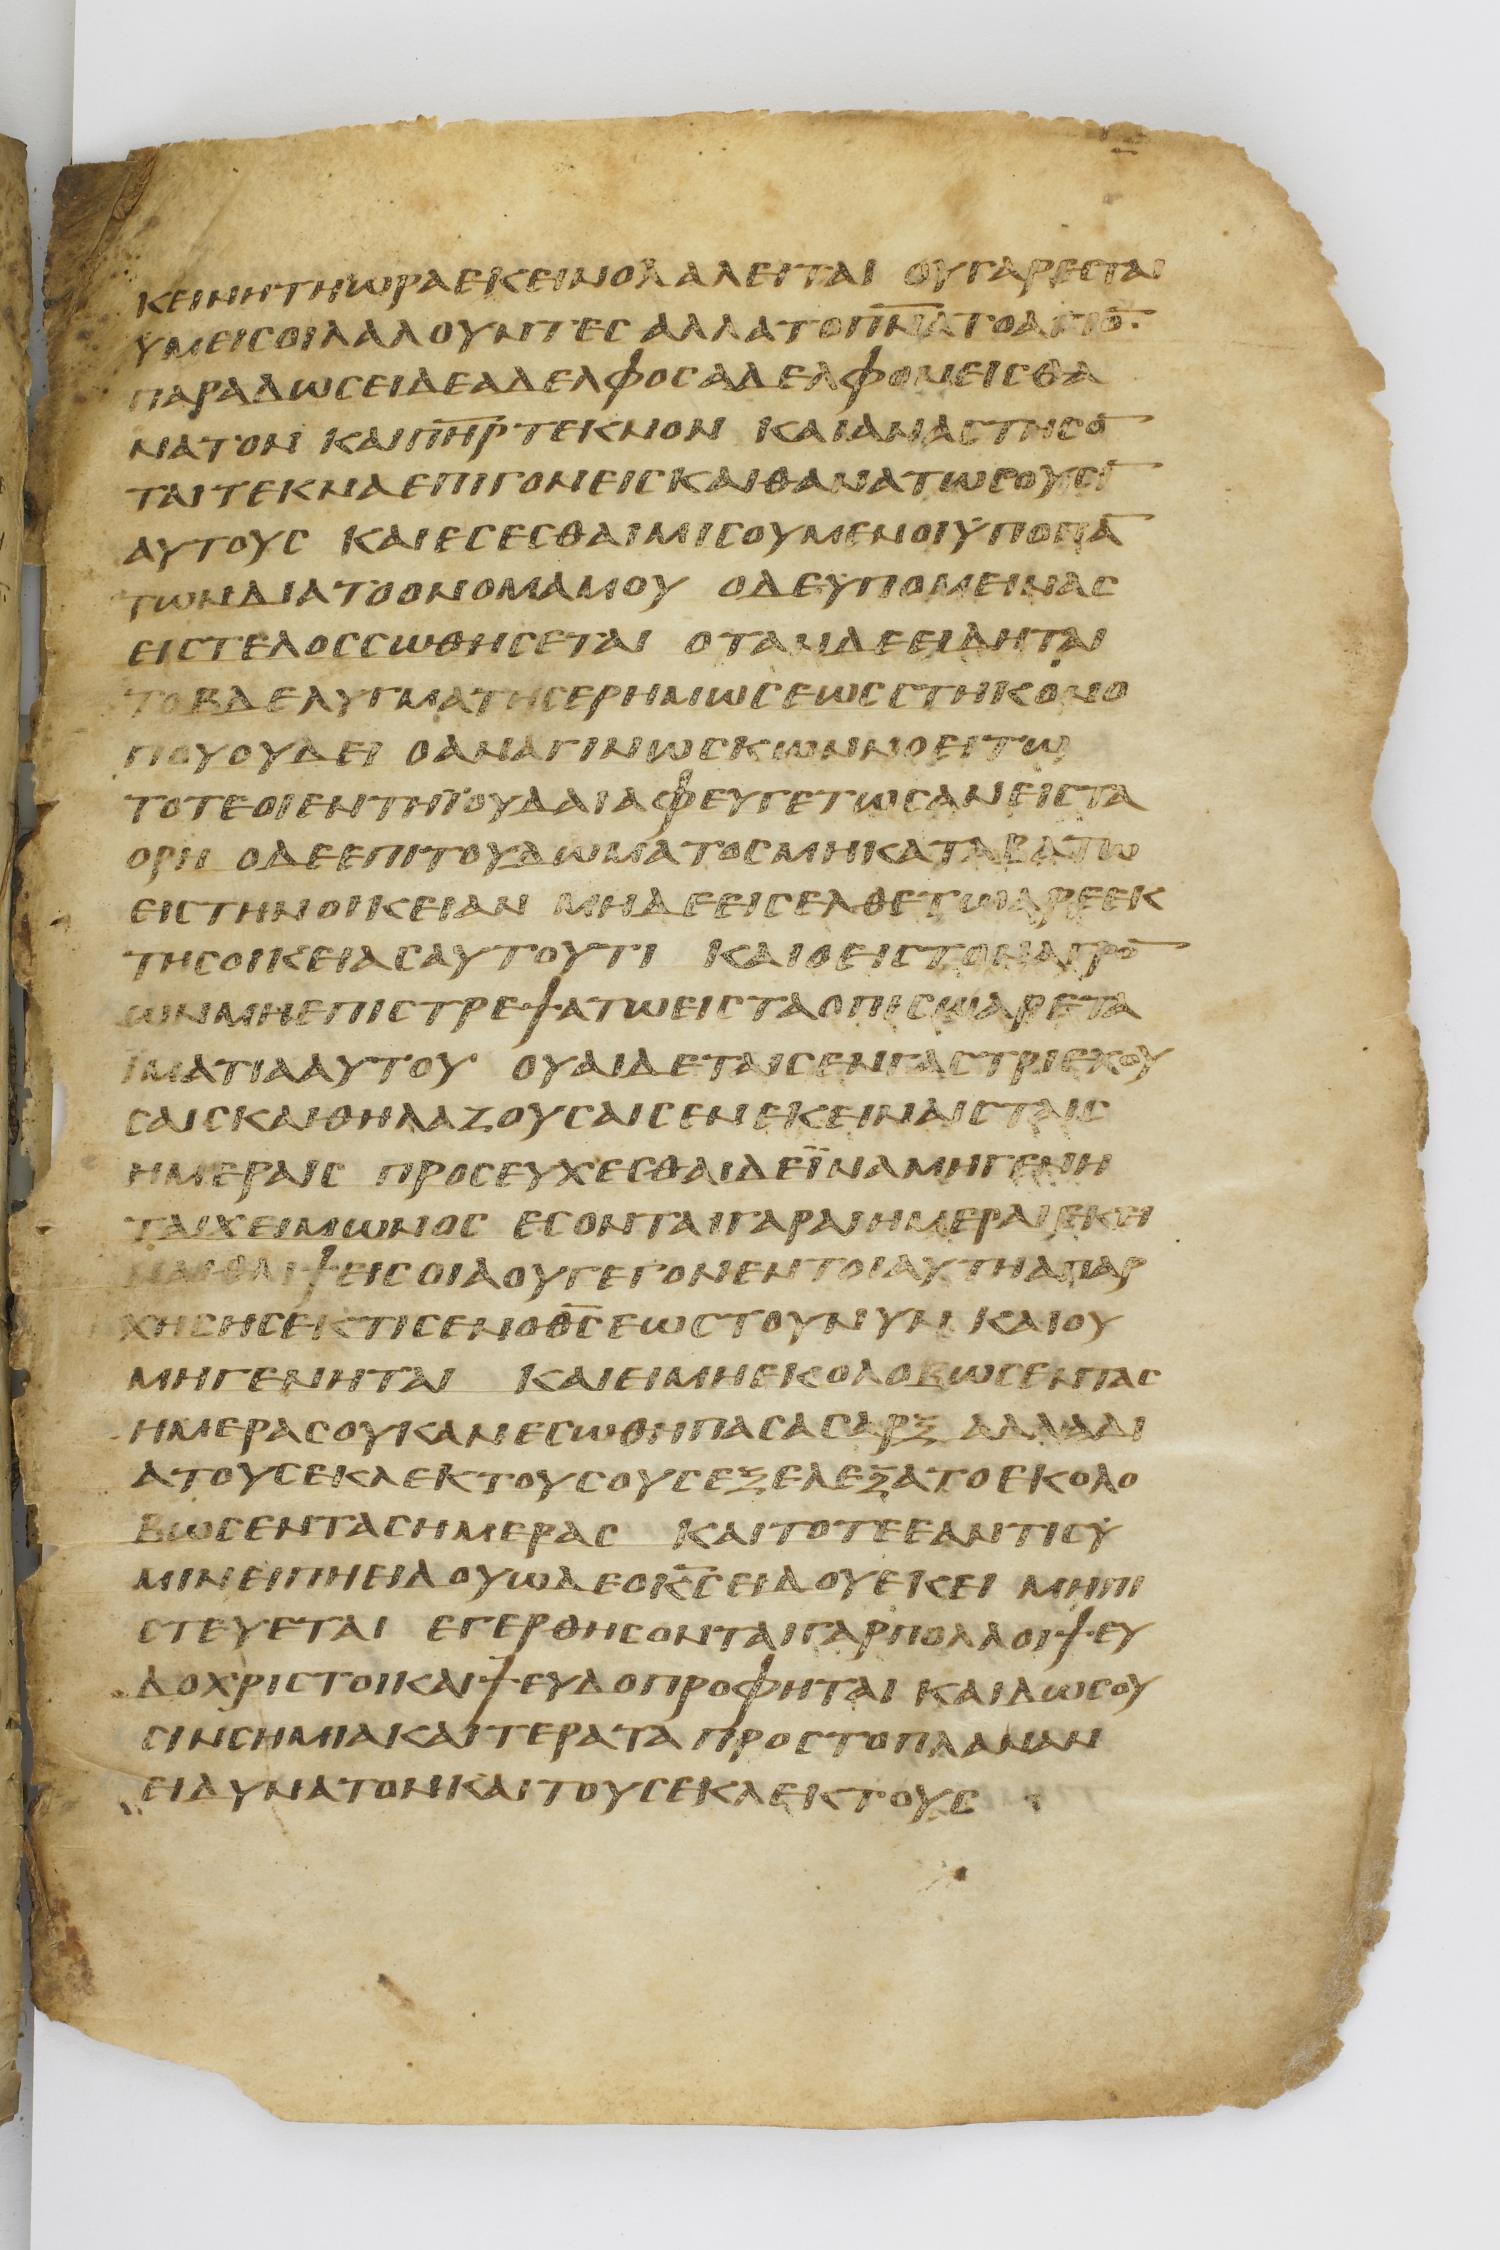 ΚΕΙΝΗΤΗΩΡΑΕΚΕΙΝΟΛΑΛΕΙΤΑΙ ΟΥΓΑΡΕΣΤΑΙ
ΥΜΕΙΣΟΙΛΑΛΟΥΝΤΕΣ ΑΛΛΑΤΟΠ̅Ν̅Α̅ΤΟΑΓΙΟ̅·
ΠΑΡΑΔΩΣΕΙΔΕΑΔΕΛΦΟΣΑΔΕΛΦΟΝΕΙΣΘΑ
ΝΑΤΟΝ ΚΑΙΠ̅Η̅Ρ̅ΤΕΚΝΟΝ ΚΑΙΑΝΑΣΤΗΣΟ̅
ΤΑΙΤΕΚΝΑΕΠΙΓΟΝΕΙΣΚΑΙΘΑΝΑΤΩΣΟΥΣΙ̅
ΑΥΤΟΥΣ ΚΑΙΕΣΕΣΘΑΙΜΙΣΟΥΜΕΝΟΙΫΠΟΠΑ̅
ΤΩΝΔΙΑΤΟΟΝΟΜΑΜΟΥ ΟΔΕΥΠΟΜΕΙΝΑΣ
ΕΙΣΤΕΛΟΣΣΩΘΗΣΕΤΑΙ ΟΤΑΝΔΕΕΙΔΗΤΑΙ
ΤΟΒΔΕΛΥΓΜΑΤΗΣΕΡΗΜΩΣΕΩΣΣΤΗΚΟΝΟ
ΠΟΥΟΥΔΕΙ ΟΑΝΑΓΙΝΩΣΚΩΝΝΟΕΙΤΩ
ΤΟΤΕΟΙΕΝΤΗΪΟΥΔΑΙΑΦΕΥΓΕΤΩΣΑΝΕΙΣΤΑ
ΟΡΗ ΟΔΕΕΠΙΤΟΥΔΩΜΑΤΟΣΜΗΚΑΤΑΒΑΤΩ
ΕΙΣΤΗΝΟΙΚΕΙΑΝ ΜΗΔΕΕΙΣΕΛΘΕΤΩΑΡΕΕΚ
ΤΗΣΟΙΚΕΙΑΣΑΥΤΟΥΤΙ ΚΑΙΟΕΙΣΤΟΝΑΓΡΟ̅
ΩΝΜΗΕΠΙΣΤΡΕΨΑΤΩΕΙΣΤΑΟΠΙΣΩΑΡΕΤΑ
ΙΜΑΤΙΑΑΥΤΟΥ ΟΥΑΙΔΕΤΑΙΣΕΝΓΑΣΤΡΙΕΧΟΥ
ΣΑΙΣΚΑΙΘΗΛΑΖΟΥΣΑΙΣΕΝΕΚΕΙΝΑΙΣΤΑΙΣ
ΗΜΕΡΑΙΣ ΠΡΟΣΕΥΧΕΣΘΑΙΔΕΪΝΑΜΗΓΕΝΗ
ΤΑΙΧΕΙΜΩΝΟΣ ΕΣΟΝΤΑΙΓΑΡΑΙΗΜΕΡΑΙΕΚΕΙ
ΝΑΙΘΛΙΨΕΙΣΟΙΑΟΥΓΕΓΟΝΕΝΤΟΙΑΥΤΗΑΠΑΡ
ΧΗΣΗΣΕΚΤΙΣΕΝΟΘ̅Σ̅ΕΩΣΤΟΥΝΥΝ ΚΑΙΟΥ
ΜΗΓΕΝΗΤΑΙ ΚΑΙΕΙΜΗΕΚΟΛΟΒΩΣΕΝΤΑΣ
ΗΜΕΡΑΣΟΥΚΑΝΕΣΩΘΗΠΑΣΑΣΑΡΞ ΑΛΛΑΔΙ
ΑΤΟΥΣΕΚΛΕΚΤΟΥΣΟΥΣΕΞΕΛΕΞΑΤΟΕΚΟΛΟ
ΒΩΣΕΝΤΑΣΗΜΕΡΑΣ ΚΑΙΤΟΤΕΕΑΝΤΙΣΫ
ΜΙΝΕΙΠΗΕΙΔΟΥΩΔΕΟΚ̅Σ̅ΕΙΔΟΥΕΚΕΙ ΜΗΠΙ
ΣΤΕΥΕΤΑΙ ΕΓΕΡΘΗΣΟΝΤΑΙΓΑΡΠΟΛΛΟΙΨΕΥ
ΔΟΧΡΙΣΤΟΙΚΑΙΨΕΥΔΟΠΡΟΦΗΤΑΙ ΚΑΙΔΩΣΟΥ
ΣΙΝΣΗΜΙΑΚΑΙΤΕΡΑΤΑΠΡΟΣΤΟΠΛΑΝΑΝ
ΕΙΔΥΝΑΤΟΝΚΑΙΤΟΥΣΕΚΛΕΚΤΟΥΣ